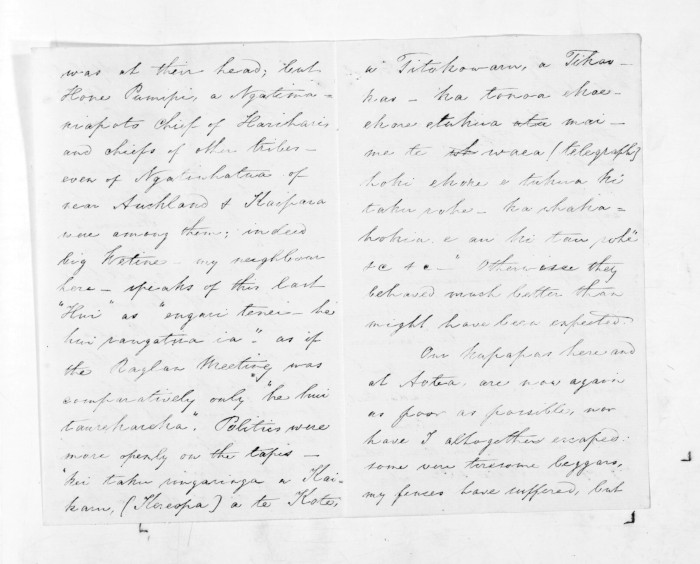 was at their head; but
Hone Pumipi, a Ngatima-
niapoto Chief of Harihari
and chiefs of other tribes -
even of Ngatiwhatua of
near Auckland & Kaipara
were among them; indeed
big Wetini - my neighbour
here - speaks of this last
"Hui" as "engari tenei - he
hui rangatira ia". as if
the Raglan Meeting was
comparatively only "he hui
taurekareka". Politics were
more openly on the tapis -
"kei taku ringaringa a Kai-
karu, (Kereopa) a te Kote,
a Titokowaru, a Tikao-
kao - ka tonoa ekore-
ekore etukua mai -
me te waea (telegraph)
hoki ekore e tukua ki
taku rohe - ka whaka-
hokia e au ki tau rohe"
&c &c -" Otherwise they
behaved much better than
might have been expected.
Our kupapas here and
at Aotea are now again
as poor as possible, nor
have I altogether escaped:
some very tiresome beggars,
my fences have suffered, but